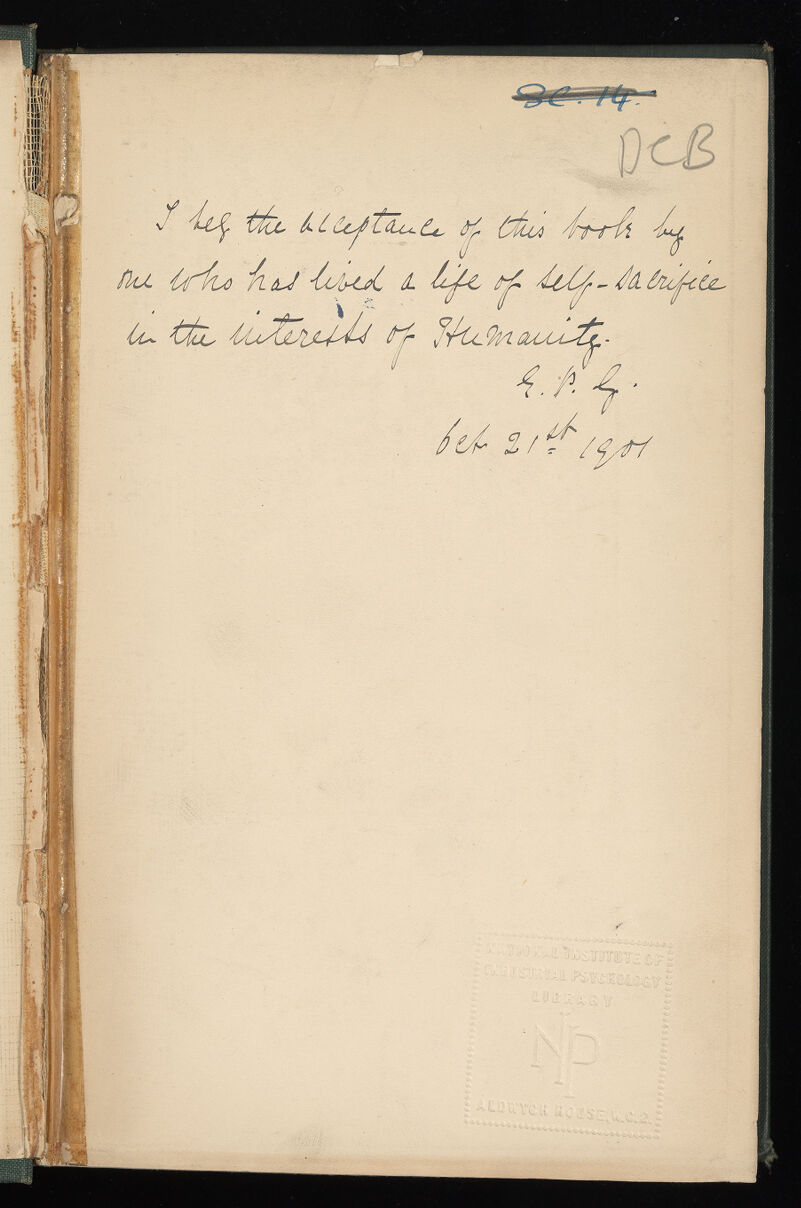 SC. 14.
DCB
I beg the acceptance of this book by
one who has lived a life of self-sacrifice
in the interests of Humanity.
E. P. G.
Oct 21st 1901
NATIONAL INSTITUTE OF
INDUSTRIAL PSYCHOLOGY
LIBRARY
NIIP
ALDWYCH HOUSE, W.C.2.